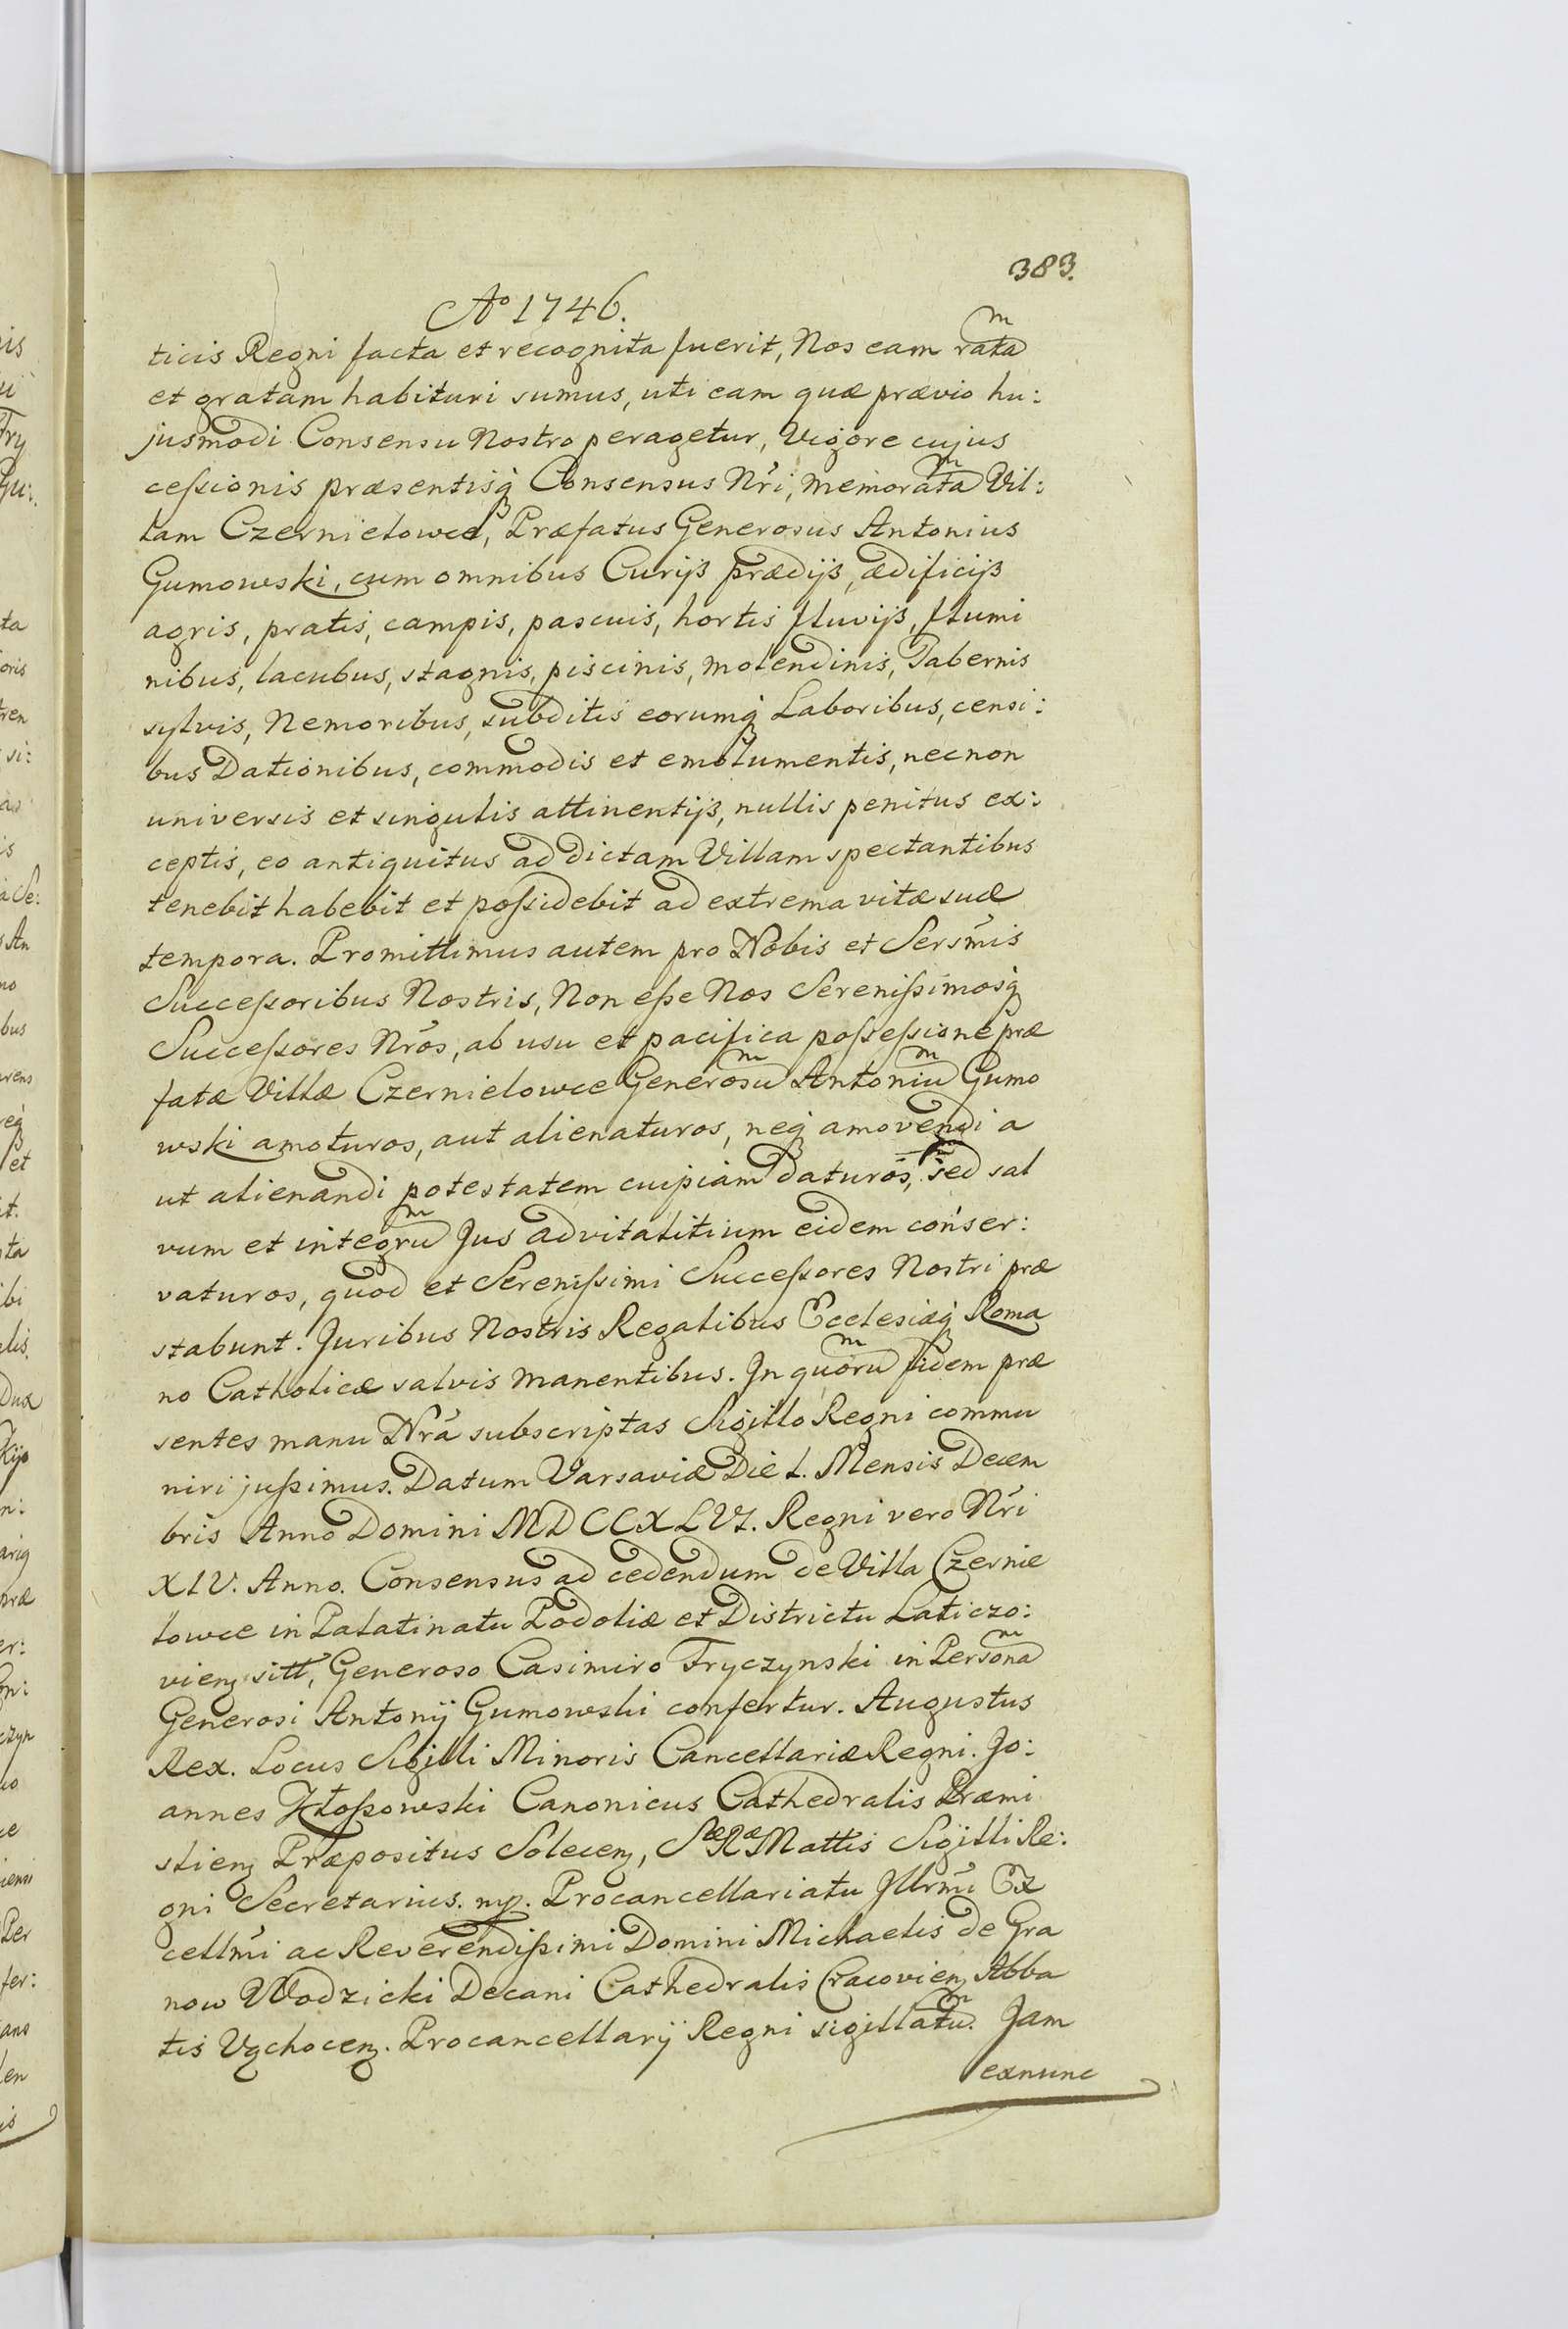 383.
Aº 1746.
ticis Regni facta et recognita fuerit, Nos eam rataᵐ
et gratam habituri sumus, uti eam quæ prævio hu:
jusmodi Consensu Nostro peragetur, Vigore cujus
ceſsionis præsentisq́ Consensus Nr̃i, memorataᵐ Vil:
lam Czernielowce, Præfatus Generosus Antonius
Gumowski, cum omnibus Curijs prædijs, ædificijs
agris, pratis, campis, pascuis, hortis fluvijs, flumi
nibus, lacubus, stagnis, piscinis, molendinis, Tabernis
sylvis, Nemoribus, subditis eorumq́ Laboribus, censi:
bus Dationibus, commodis et emolumentis, necnon
universis et singulis attinentijs, nullis penitus ex:
ceptis, eo antiquitus ad dictam Villam spectantibus
tenebit habebit et poſsidebit ad extrema vitæ suæ
tempora. Promittimus autem pro Nobis et Sersm̃is
Succeſsoribus Nostris, Non eſse Nos Sereniſsimosq́
Succeſsores Nr̃os, ab usu et pacifica poſseſsione præ
fatæ Villæ Czernielowce Generosuᵐ Antoniuᵐ Gumo
wski amoturos, aut alienaturos, neq́ amovendi a
ut alienandi potestatem cuipiam daturos, sed sal
vum et integruᵐ Jus advitalitium eidem conser:
vaturos, quod et Sereniſsimi Succeſsores Nostri præ
stabunt. Juribus Nostris Regalibus Ecclesiæq́ Roma
no Catholicæ salvis manentibus. Jn quoruᵐ fidem præ
sentes manu Nr̃a subscriptas Sigillo Regni commu
niri juſsimus. Datum Varsaviæ Die 1. Mensis Decem
bris Anno Domini MDCCXLVI. Regni vero Nr̃i
XIV. Anno. Consensus ad cedendum de Villa Czernie
lowce in Palatinatu Podoliæ et Districtu Laticzo:
vienȝ sitt, Generoso Casimiro Fryczynski in Personaᵐ
Generosi Antonij Gumowski confertur. Augustus
Rex. Locus Sigilli Minoris Cancellariæ Regni. Jo:
annes Kłoſsowski Canonicus Cathedralis Præmi
slienȝ Præpositus Solecenȝ, SᵃᵉRᵃᵉ Mattis Sigilli Re:
gni Secretarius. mp. Procancellariatu Jllrm̃i Ex
cellm̃i ac Reverendiſsimi Domini Michaelis de Gra
now Wodzicki Decani Cathedralis Cracovienȝ Abba
tis Vąchocenȝ. Procancellarij Regni sigillatuᵐ. Jam
exnunc